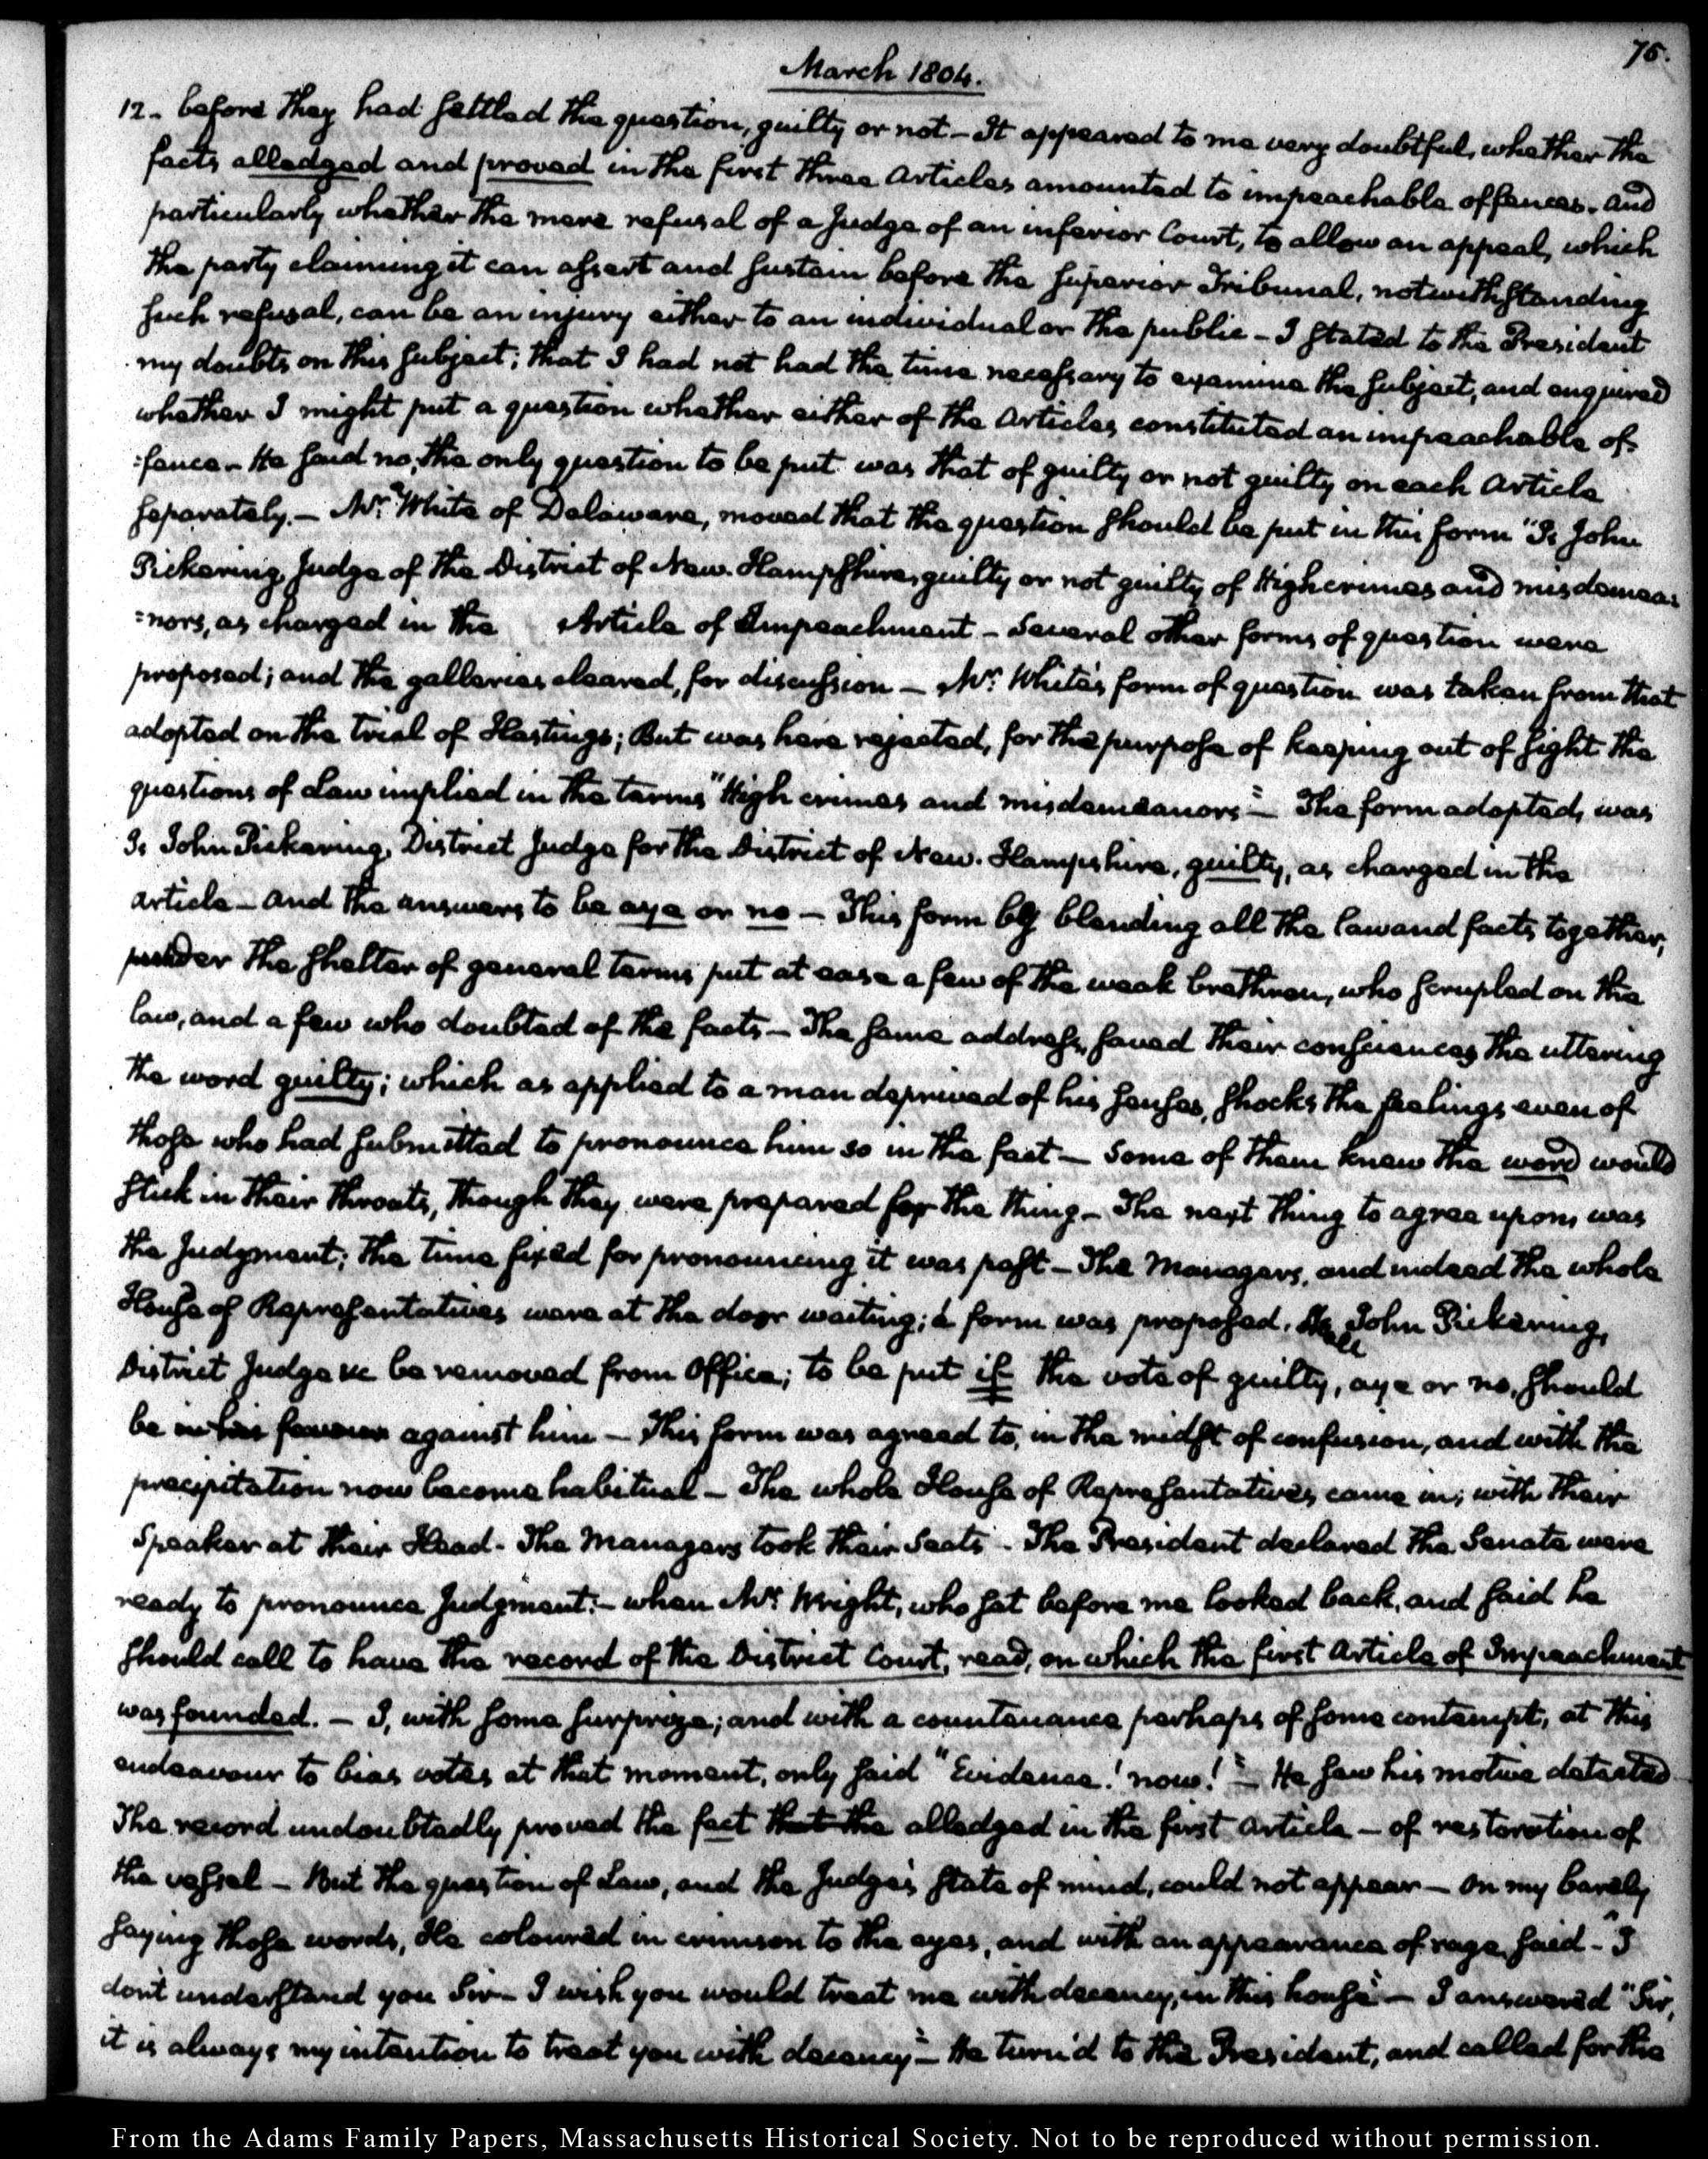 75.
March 1804.
12. before they had settled the question, guilty or not – It appeared to me very doubtful, whether the
facts alledged and proved in the first three Articles amounted to impeachable offences. and
particularly whether the mere refusal of a Judge of an inferior Court, to allow an appeal, which
the party claiming it can assert and sustain before the Superior Tribunal, notwithstanding
such refusal, can be an injury either to an individual or the public – I stated to the President
my doubts on this subject; that I had not had the time necessary to examine the subject, and enquired
whether I might put a question whether either of the Articles constituted an impeachable of-
:fence – He said no, the only question to be put was that of guilty or not guilty on each Article
separately. – Mr. White of Delaware, moved that the question should be put in this form "Is John
Pickering Judge of the District of New-Hampshire, guilty or not guilty of High crimes and misdemea-
=nors, as charged in the Article of Impeachment – Several other forms of question were
proposed; and the galleries cleared, for discussion – Mr. White's form of question was taken from that
adopted on the trial of Hastings; But was here rejected, for the purpose of keeping out of sight the
questions of Law implied in the terms "High crimes and misdemeanors" – The form adopted, was
Is John Pickering, District Judge for the District of New-Hampshire, guilty, as charged in the
article – and the answers to be aye or no – This form by blending all the law and facts together,
under the shelter of general terms put at ease a few of the weak brethren, who scrupled on the
law, and a few who doubted of the facts – The same address, saved their consciences the uttering
the word guilty; which as applied to a man deprived of his senses, shocks the feelings even of
those who had submitted to pronounce him so in the fact – Some of them knew the word would
stick in their throats, though they were prepared for the thing – The next thing to agree upon, was
the Judgment; the time fixed for pronouncing it was past – The Managers, and indeed the whole
House of Representatives were at the door waiting; a form was proposed. Shall John Pickering,
District Judge &c be removed from Office; to be put if the vote of guilty, aye or no, should
be in his favour against him – This form was agreed to, in the midst of confusion, and with the
precipitation now become habitual – The whole House of Representatives came in; with their
Speaker at their Head. The Managers took their Seats – The President declared the Senate were
ready to pronounce Judgment: – when Mr. Wright, who sat before me looked back, and said he
should call to have the record of the District Court, read, on which the first Article of Impeachment
was founded. – I, with some surprize; and with a countenance perhaps of some contempt, at this
endeavour to bias votes at that moment, only said "Evidence! now!" – He saw his motive detected
The record undoubtedly proved the fact that the alledged in the first Article – of restoration of
the vessel – But the question of Law, and the Judge's state of mind, could not appear – On my barely
saying those words, He coloured in crimson to the eyes, and with an appearance of rage, said – "I
don't understand you Sir – I wish you would treat me with decency, in this house" – I answered "Sir,
it is always my intention to treat you with decency" – He turn'd to the President, and called for the
From the Adams Family Papers, Massachusetts Historical Society. Not to be reproduced without permission.